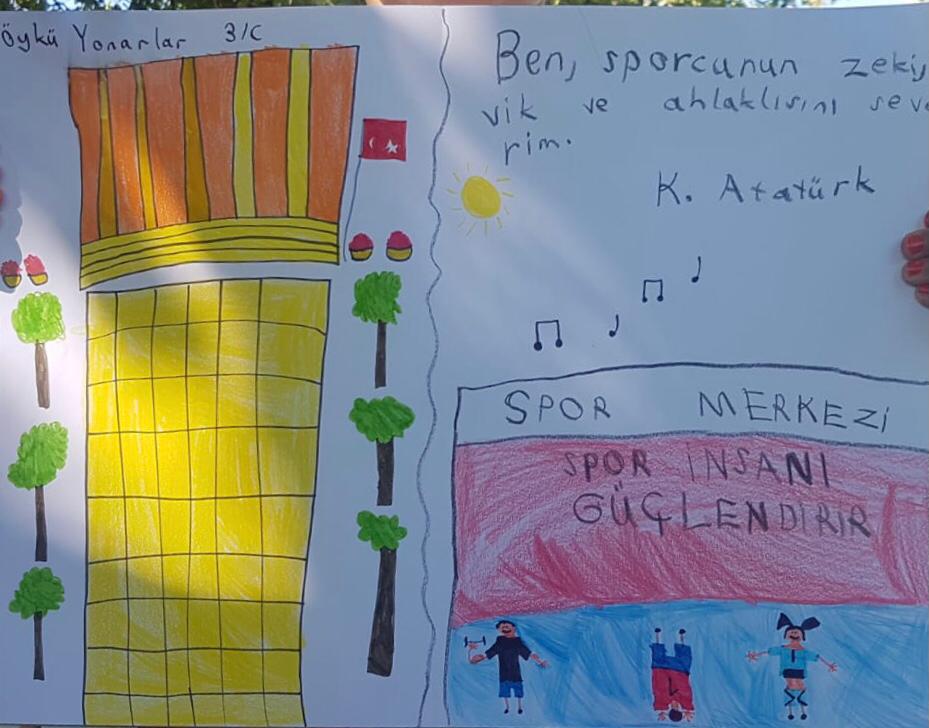 Öykü Yonarlar 3/C
Ben, sporcunun zeki,
vik ve ahlaklısını seve
rim.
K. Atatürk
SPOR MERKEZİ
SPOR İNSANI
GÜÇLENDİRİR